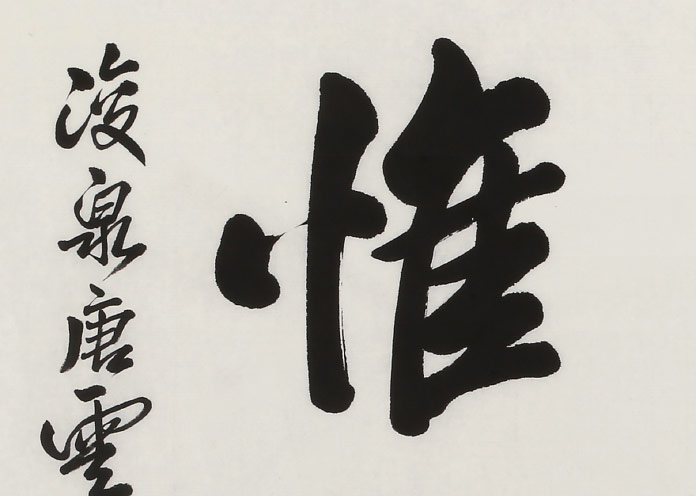 惟
浚泉唐雲